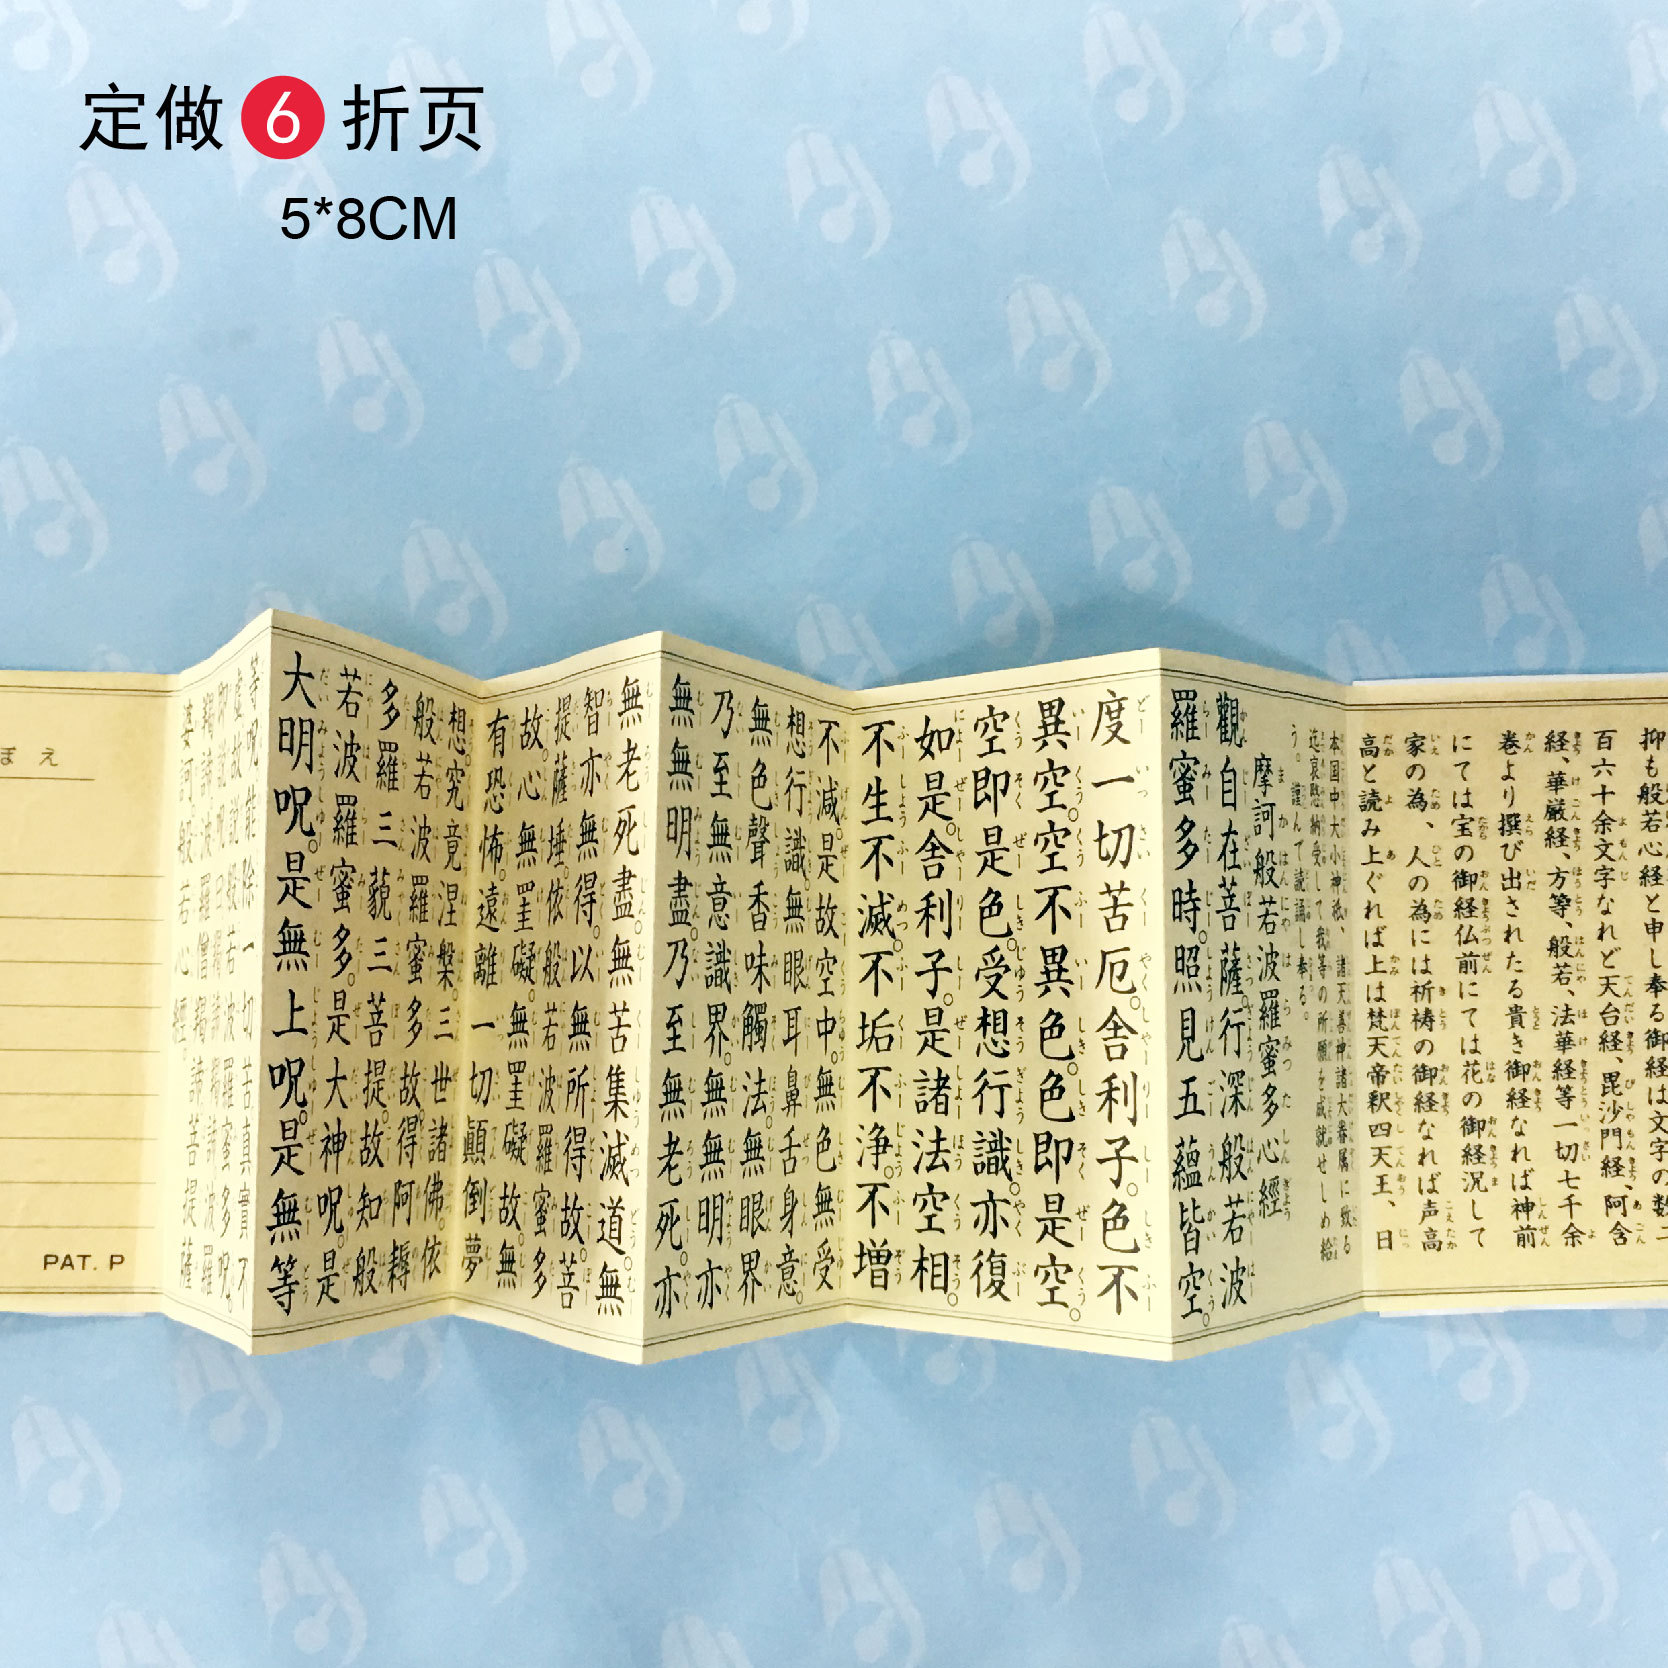 定做6折页
5*8CM
抑も般若心経と申し奉る御経は文字の数二
百六十余文字なれど天台経、毘沙門経、阿含
経、華厳経、方等、般若、法華経等一切七千余
巻より撰び出されたる貴き御経なれば神前
にては宝の御経仏前にては花の御経況して
家の為、人の為には祈祷の御経なれば声高
高と読み上ぐれば上は梵天帝釈四天王、日
本国中大小神祇、諸天善神諸大眷属に致る
迄哀愍納受して我等の所願を成就せしめ給
う。謹んで読誦し奉る。
摩訶般若波羅蜜多心經
觀自在菩薩。行深般若波
羅蜜多時。照見五蘊皆空。
度一切苦厄。舎利子。色不
異空。空不異色。色即是空。
空即是色。受想行識。亦復
如是。舎利子。是諸法空相。
不生不滅。不垢不浄。不増
不減。是故空中。無色無受
想行識。無眼耳鼻舌身意。
無色聲香味觸法。無眼界
乃至無意識界。無無明亦
無無明盡。乃至無老死。亦
無老死盡。無苦集滅道。無
智亦無得。以無所得故。菩
提薩埵。依般若波羅蜜多
故。心無罣礙。無罣礙故。無
有恐怖。遠離一切顚倒夢
想。究竟涅槃。三世諸佛。依
般若波羅蜜多故。得阿耨
多羅三藐三菩提。故知般
若波羅蜜多。是大神呪。是
大明呪。是無上呪。是無等
等呪。能除一切苦真實不
虚。故説般若波羅蜜多呪。
即説呪曰羯諦羯諦波羅
羯諦波羅僧羯諦菩提薩
婆訶般若心經。
ぼえ
PAT. P